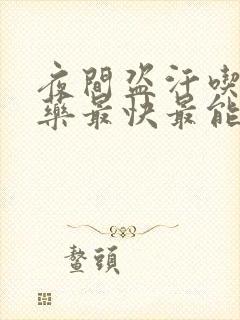 夜間盜汗喫
藥最快最能
鰲頭